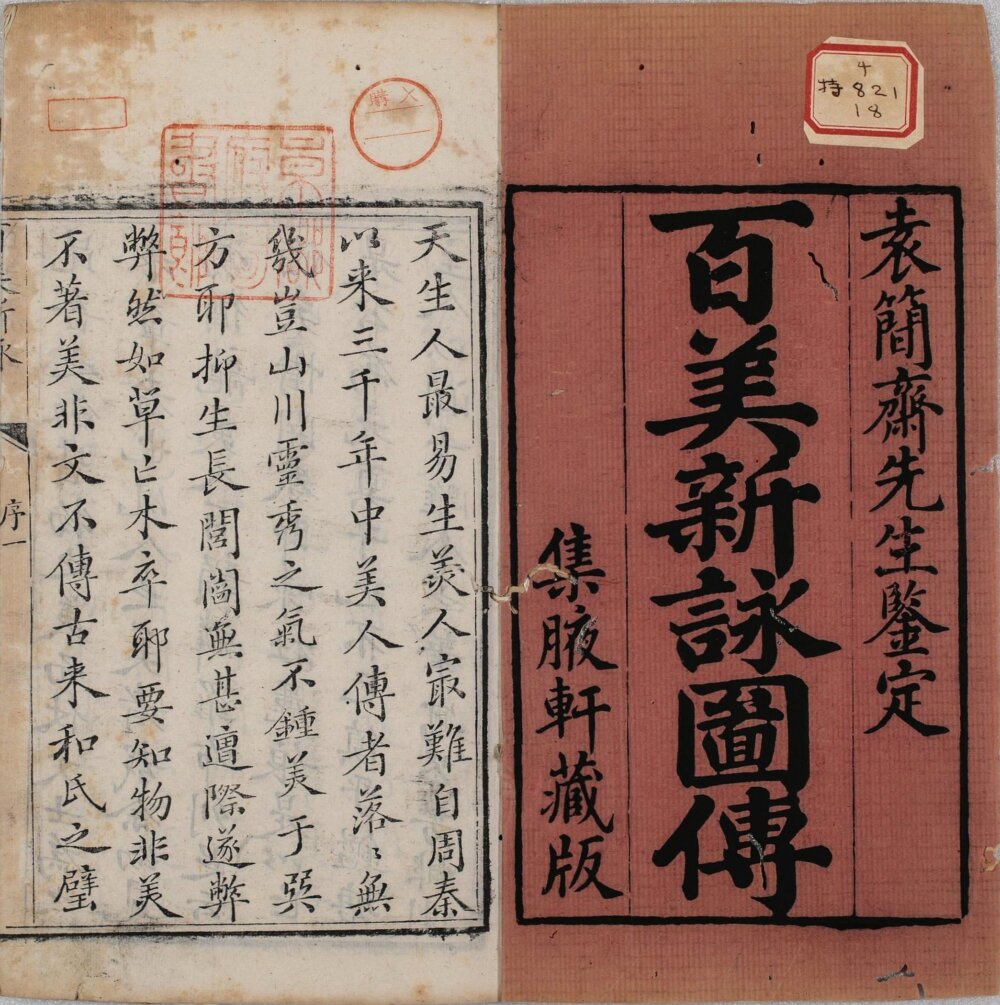 4
特821
18
袁簡齋先生鑒定
百美新詠圖傳
集腋軒藏版
天生人最易生羙人寂難自周秦
以来三千年中美人傳者落〻無
幾豈山川靈秀之氣不鍾美于巽
方耶抑生長閭閻無甚遭際遂弊
弊然如草亡木卒耶要知物非美
不著美非文不傳古来和氏之璧
序一